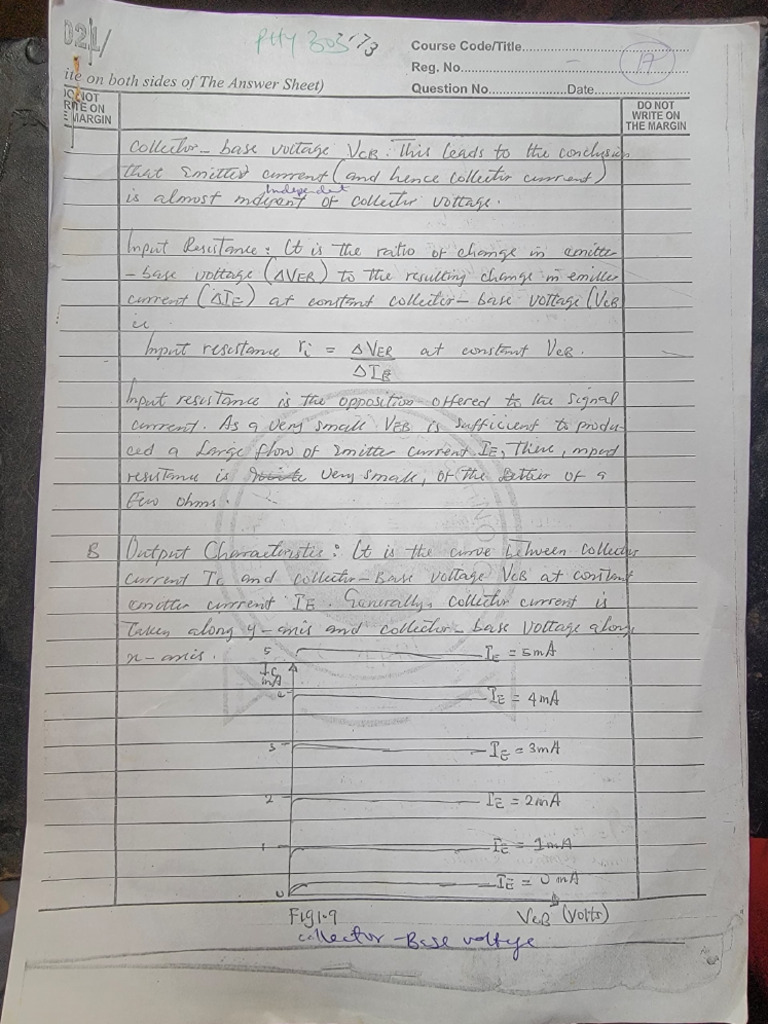 021/
PHY 303
173
Course Code/Title
17
Reg. No
ite on both sides of The Answer Sheet)
Question No. Date
DO NOT
WRITE ON
MARGIN
DO NOT
WRITE ON
THE MARGIN
Collector-base voltage VCB. This leads to the conclusion
that Emitter current (and hence collector current)
Independent
is almost of collector voltage.
Input Resistance: It is the ratio of change in emitter
-base voltage (ΔVEB) to the resulting change in emitter
current (ΔIE) at constant collector-base voltage (VCB
ie
Input resistance ri = ΔVEB at constant VCB.
ΔIE
Input resistance is the opposition offered to the signal
current. As a very small VEB is sufficient to produ-
ced a Large flow of Emitter current IE, There, input
resistance is very small, of the of a
Few ohms.
B Output Characteristic: It is the curve between collector
current IC and collector-Base voltage VCB at constant
emitter current IE. Generally, collector current is
Taken along y-axis and collector-base voltage along
x-axis.
5 IE = 5mA
IC
mA
IE = 4mA
3 IE = 3mA
2 IE = 2mA
1 IE = 1mA
0 IE = 0 mA
Fig1.9 VCB (Volts)
collector-Base voltage